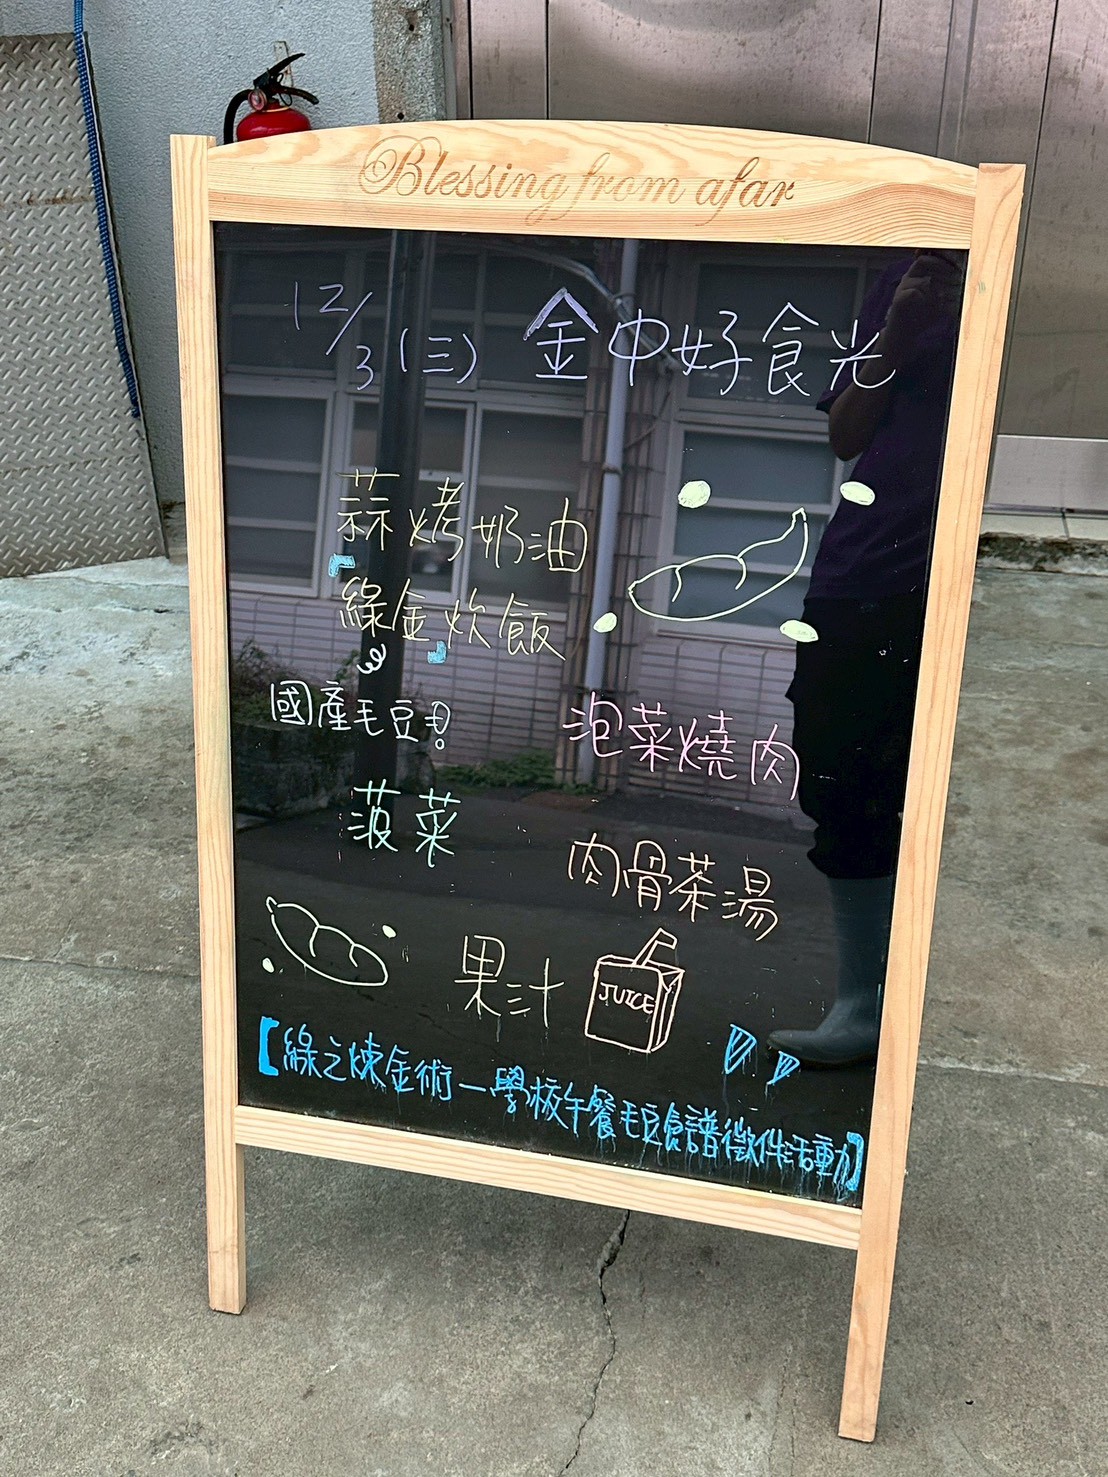 Blessing from afar
12/3 (三) 金中好食光
蒜烤奶油
「綠金炊飯」
國產毛豆!
泡菜燒肉
菠菜
肉骨茶湯
果汁
JUICE
【綠之煉金術-學校午餐毛豆食譜徵件活動】